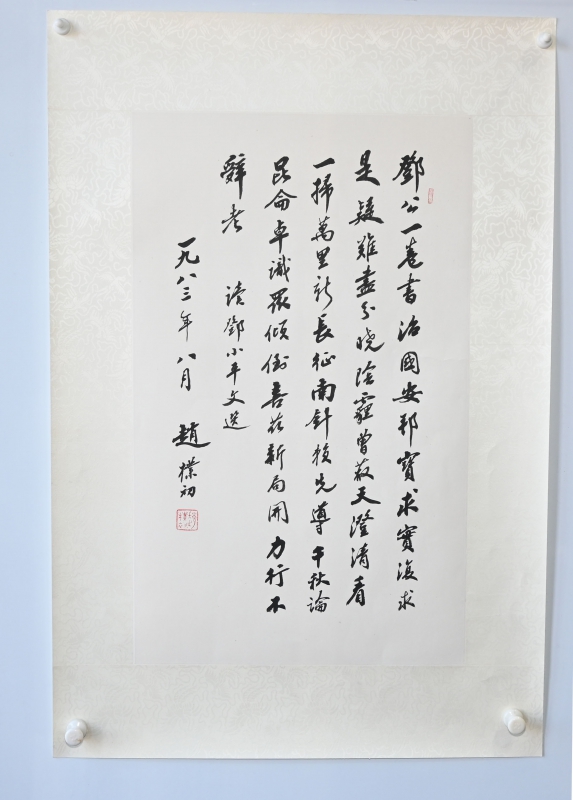 鄧公一卷書治國安邦寶求實復求
是疑難盡分曉陰霾曾蔽天澄清看
一掃萬里新長征南針賴先導千秋論
昆侖卓識眾傾倒喜茲新局開力行不
辭老 读鄧小平文选
一九八三年八月 趙樸初